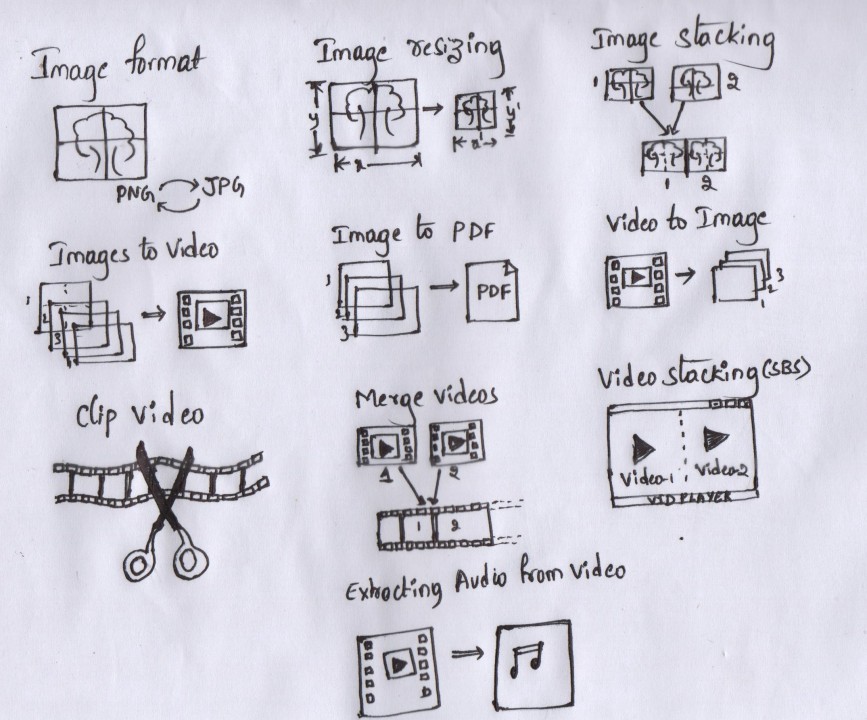 Image format
PNG JPG
Image resizing
y
x
y'
x'
Image stacking
1 2
1 2
Images to Video
1
2
3
4
Image to PDF
1
2
3
PDF
Video to Image
3
2
1
Clip Video
Merge videos
1 2
1 2
Video stacking (SBS)
Video-1 Video-2
VID PLAYER
Extracting Audio from Video